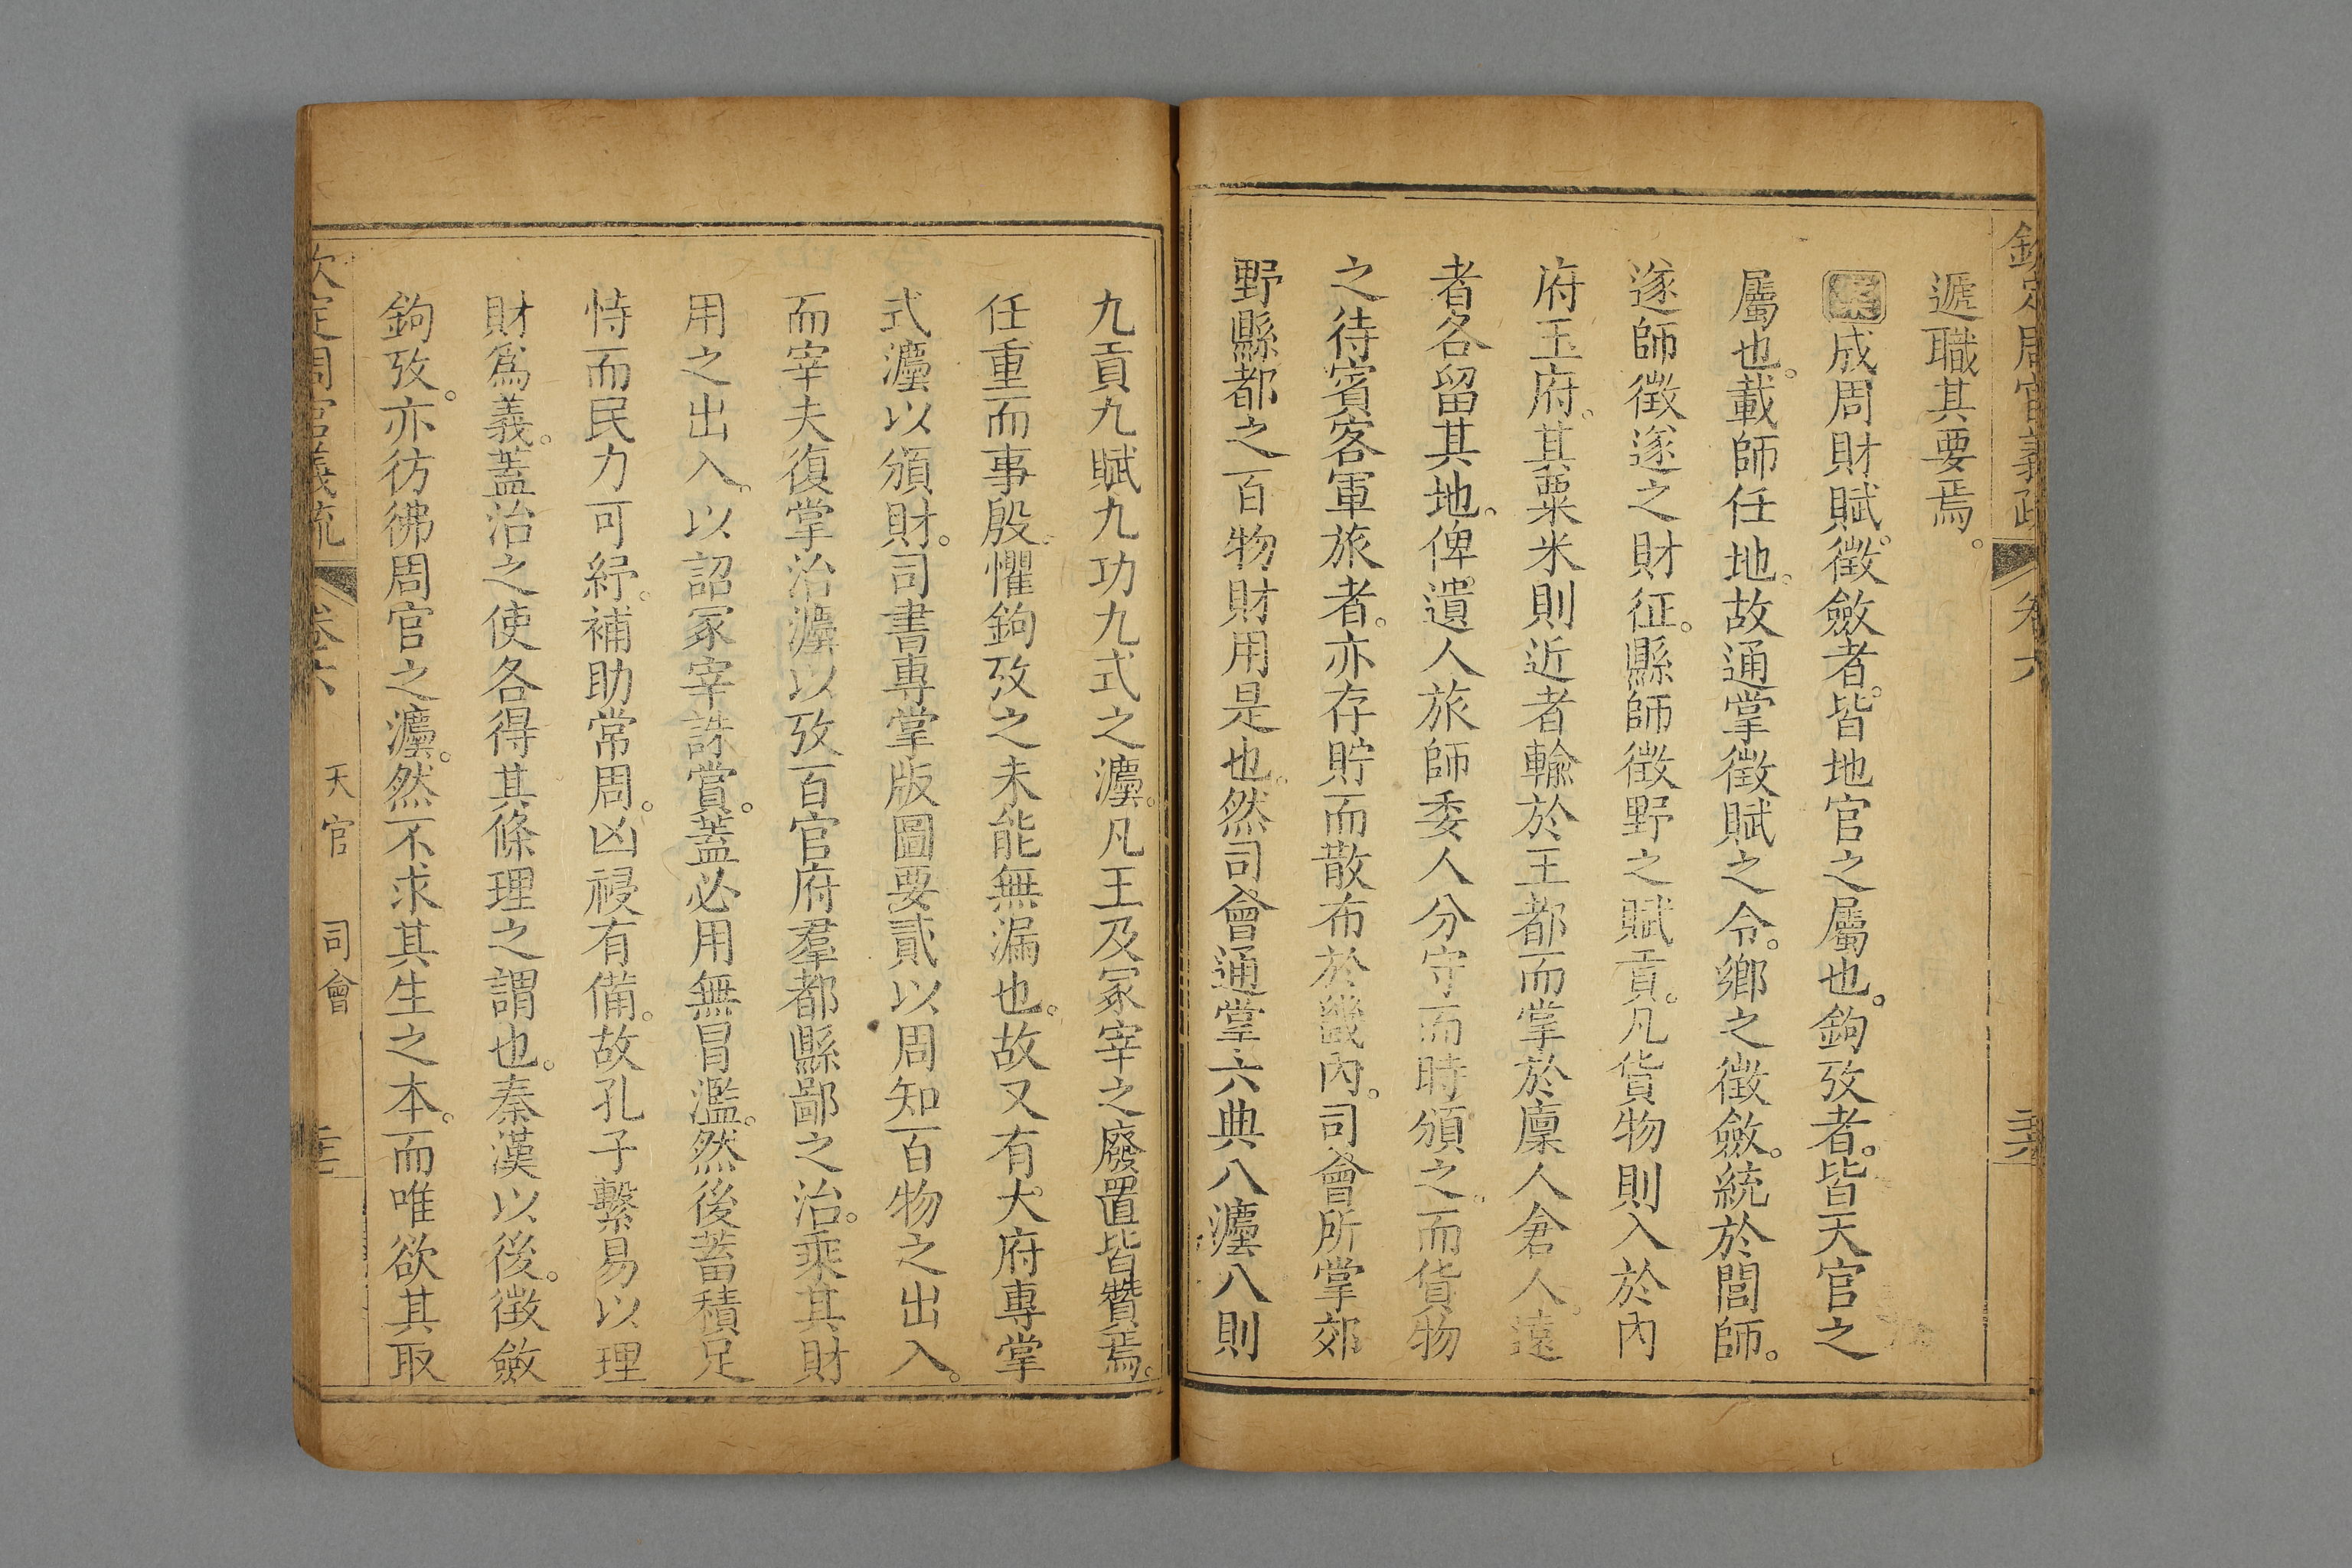 欽定周官義疏 卷六
遞職其要焉。
案成周財賦。徵斂者。皆地官之屬也。鉤攷者。皆天官之
屬也。載師任地。故通掌徵賦之令。鄉之徵斂。統於閭師。
遂師徵遂之財征。縣師徵野之賦貢。凡貨物則入於內
府玉府。其粟米則近者輸於王都而掌於廩人倉人。遠
者各留其地。俾遺人旅師委人分守而時頒之。而貨物
之待賓客軍旅者。亦存貯而散布於畿內。司會所掌郊
野縣都之百物財用是也。然司會通掌六典八灋八則
九貢九賦九功九式之灋。凡王及冢宰之廢置皆贊焉。
任重而事殷。懼鉤攷之未能無漏也。故又有大府專掌
式灋以頒財。司書專掌版圖要貳以周知百物之出入。
而宰夫復掌治灋以攷百官府羣都縣鄙之治。乘其財
用之出入。以詔冢宰誅賞。蓋必用無冒濫。然後蓄積足
恃而民力可紓。補助常周。凶祲有備。故孔子繫易以理
財爲義。蓋治之使各得其條理之謂也。秦漢以後。徵斂
鉤攷。亦彷彿周官之灋。然不求其生之本。而唯欲其取
欽定周官義疏 卷六 天官 司會